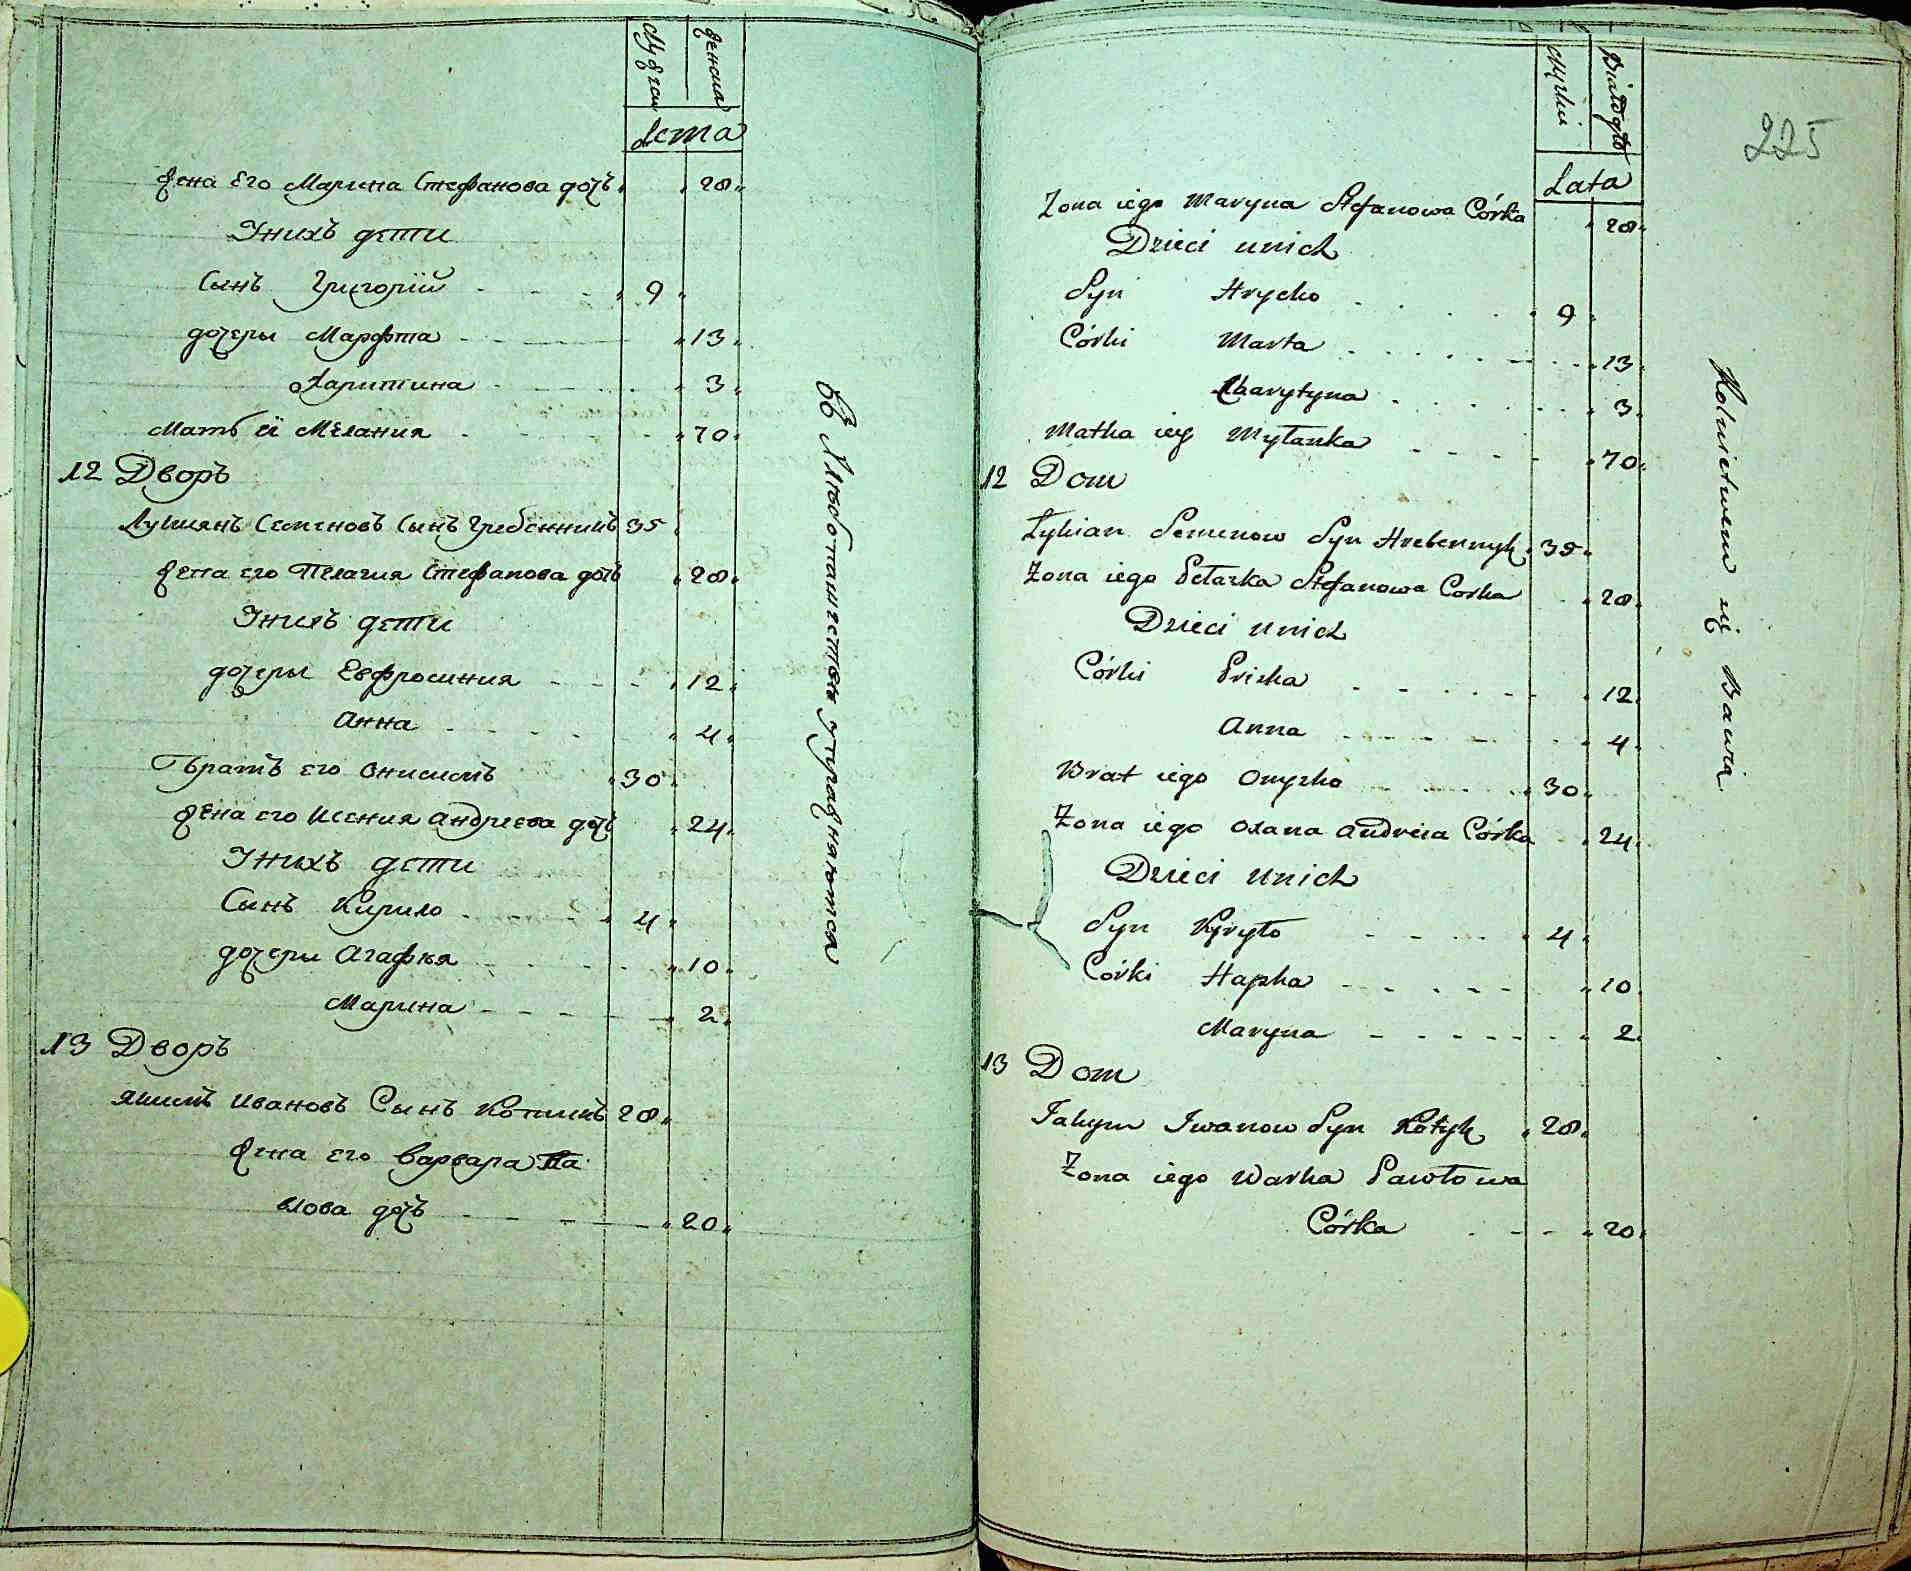 Мужеска
женска
Лета
жена Его Марина Стефанова дочь 28
Унихъ дети
Сынъ Григорій 9
дочеры Марфта 13
Харитина 3
Мать ей Мелания 70
12 Дворъ
Лукиянъ Семеновъ Сынъ Гребенникъ 35
жена его Пелагия Стефанова дочь 28
Унихъ дети
дочеры Евфросиния 12
Анна 4
Братъ его Онисимъ 30
жена его Ксения Андреева дочь 24
Унихъ дети
Сынъ Кирило 4
дочеры Агафия 10
Марина 2
13 Дворъ
Якимъ Ивановъ Сынъ Котикъ 28
жена его Варвара Па
влова дочь 20
въ Хлебопашестве упражняются
225
Męzkiej
Białogło
Lata
Zona iego Maryna Stefanowa Córka 28
Dzieci unich
Syn Hrycko 9
Córki Marta 13
Charytyna 3
Matka iey Mylanka 70
12 Dom
Łykian Semenow Syn Hrebennyk 35
Zona iego Pelaszka Stefanowa Corka 28
Dzieci unich
Córki Priska 12
Anna 4
Brat iego Onyszko 30
Zona iego Oxana Andreia Córka 24
Dzieci unich
Syn Kyryło 4
Córki Hapka 10
Maryna 2
13 Dom
Jakym Iwanow Syn Kotyk 28
Zona iego Warka Pawłowa
Córka 20
Rolnictwem się Bawią